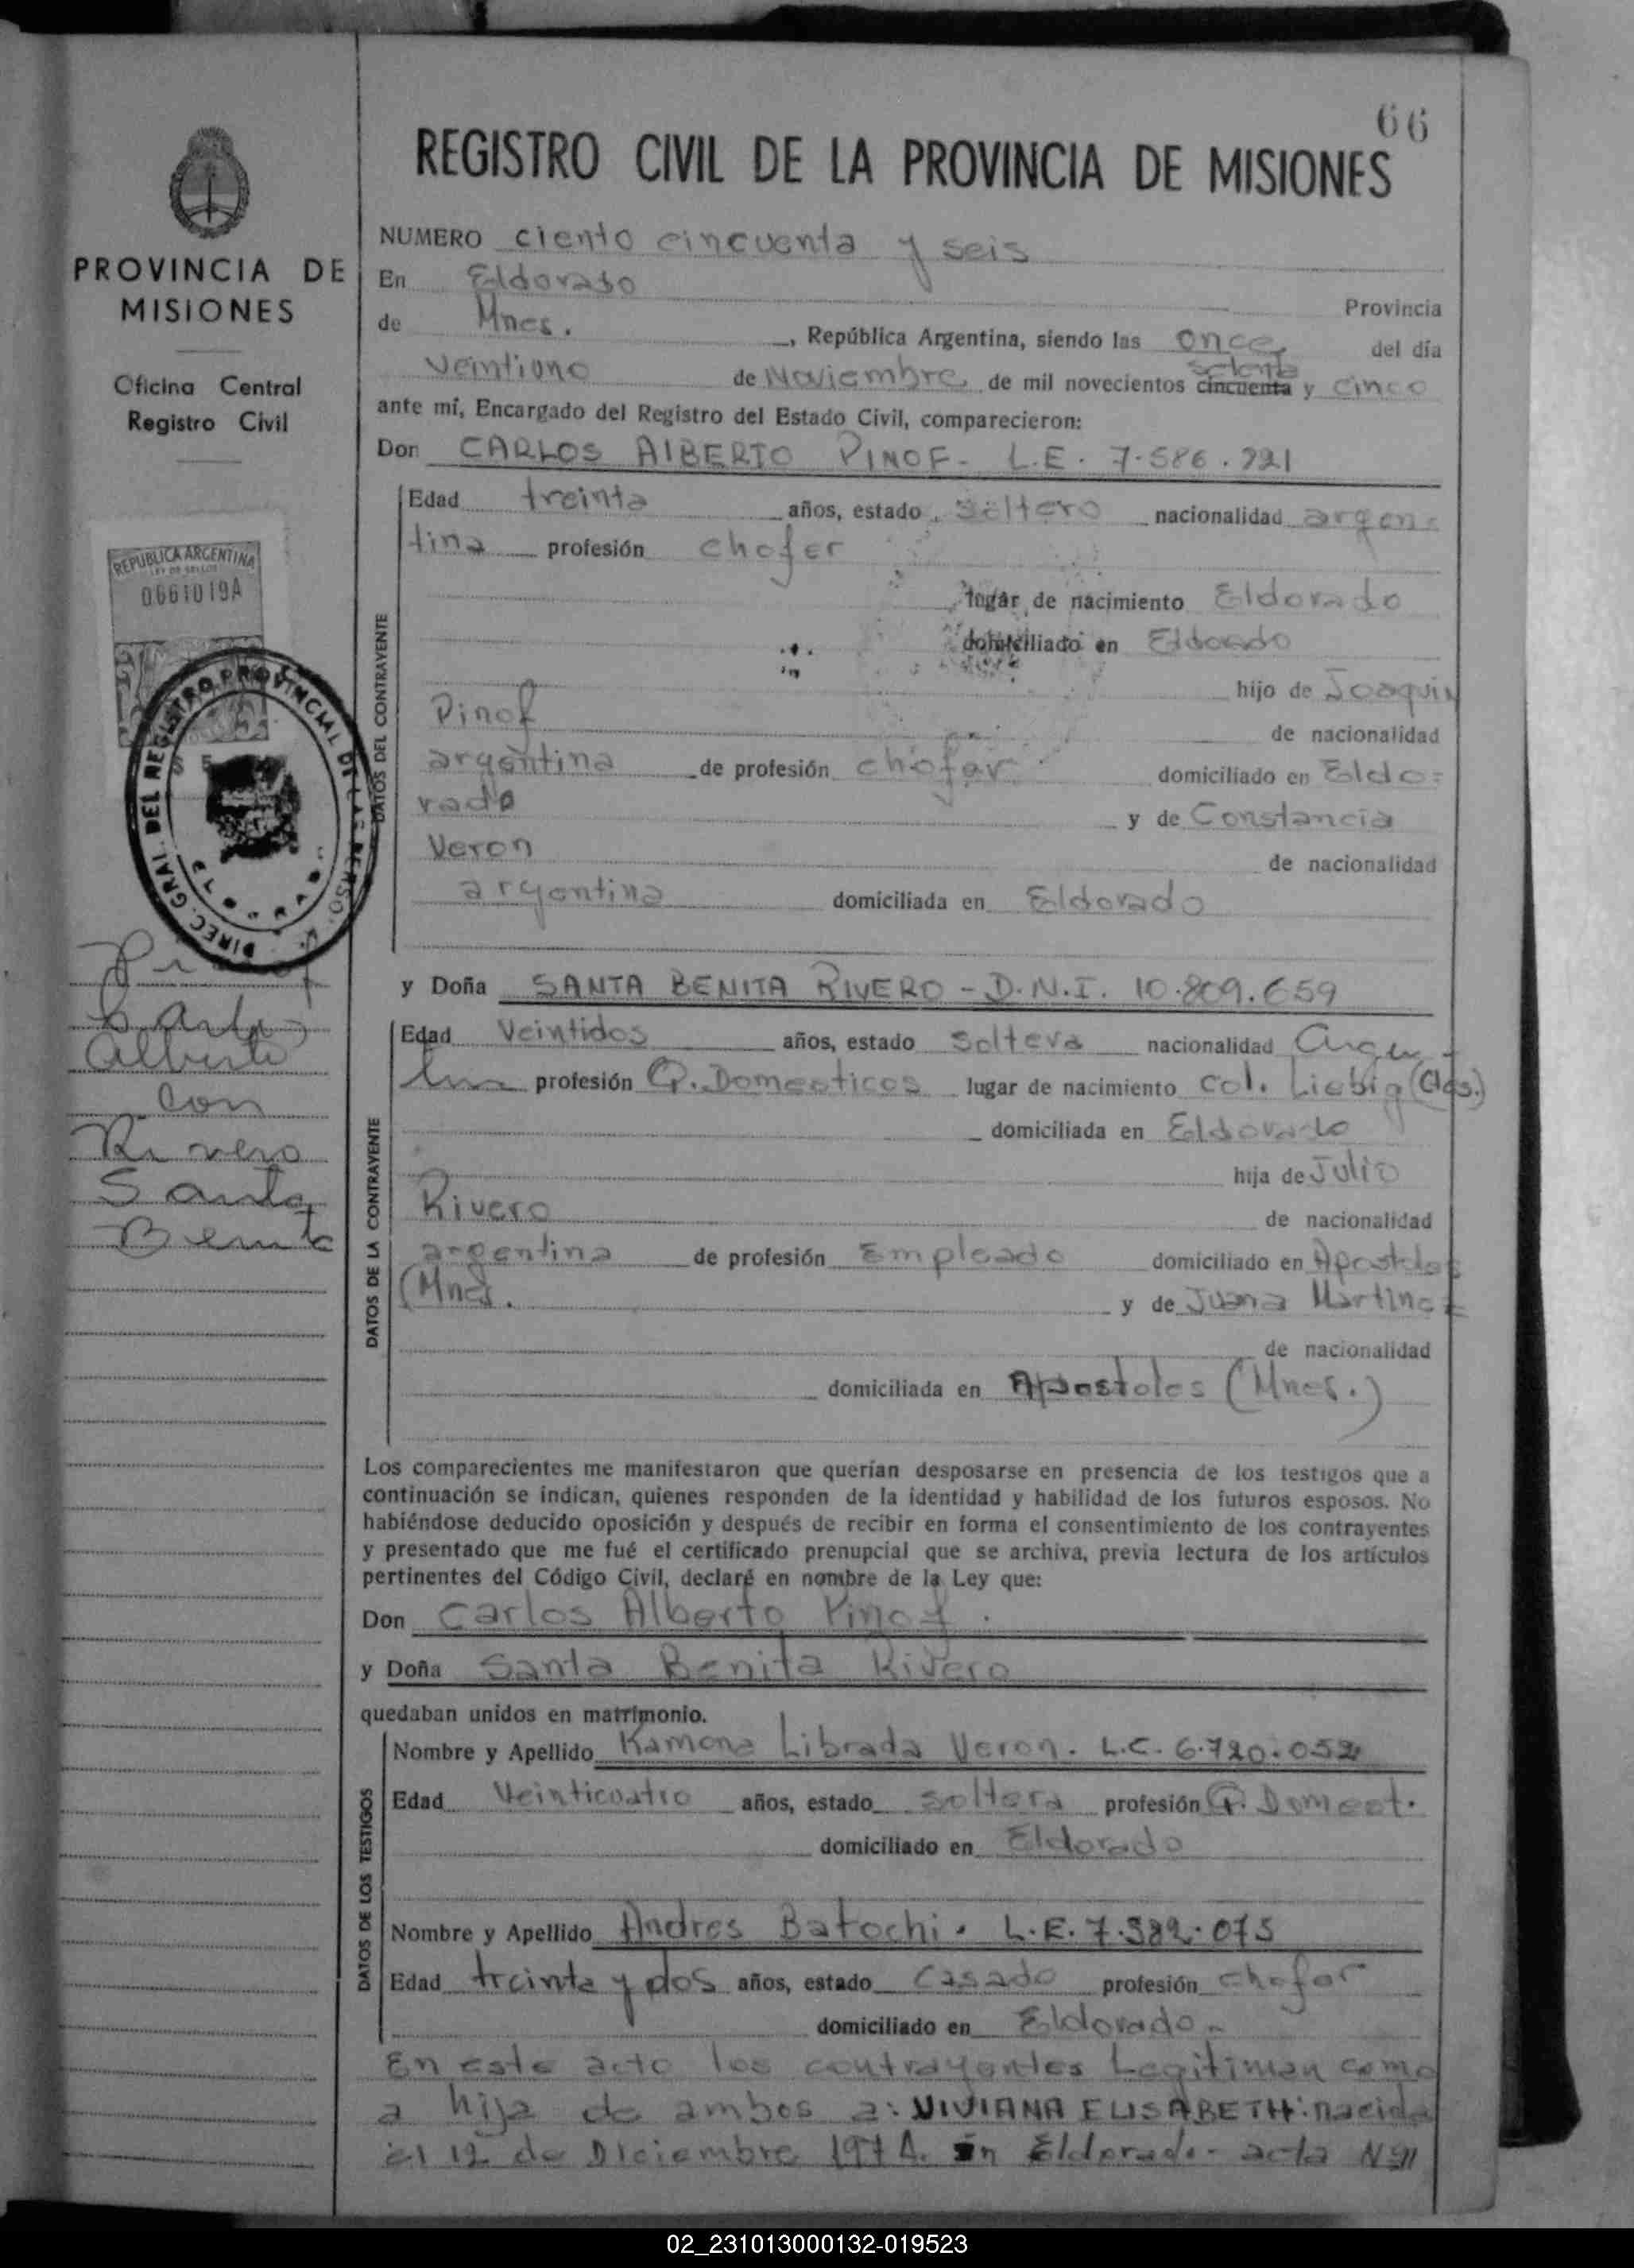 66
REGISTRO CIVIL DE LA PROVINCIA DE MISIONES
PROVINCIA DE
MISIONES
Oficina Central
Registro Civil
REPUBLICA ARGENTINA
LEY DE SELLOS
0661019A
DIREC. GRAL. DEL REGISTRO PROVINCIAL DE LAS PERSO
Pinof
Carlos
Alberto
con
Rivero
Santa
Benita
NUMERO ciento cincuenta y seis
En Eldorado
Provincia
de Mnes. , República Argentina, siendo las once del día
setenta
veintiuno de Noviembre de mil novecientos cincuenta y cinco
ante mí, Encargado del Registro del Estado Civil, comparecieron:
Don CARLOS AlBERTO PINOF - L.E. 7.586.
DATOS DEL CONTRAYENTE
Edad treinta años, estado soltero nacionalidad argen=
tina profesión chofer
lugar de nacimiento Eldorado
domiciliado en Eldorado
hijo de Joaquin
Pinof de nacionalidad
argentina de profesión chofer domiciliado en Eldo=
rado y de Constancia
Veron de nacionalidad
argentina domiciliada en Eldorado
y Doña SANTA BENITA RIVERO - D.N.I. 10.809.659
DATOS DE LA CONTRAYENTE
Edad Veintidos años, estado soltera nacionalidad Argen-
tina profesión Q. Domesticos lugar de nacimiento Col. Liebig
domiciliada en Eldorado
hija de Julio
Rivero de nacionalidad
argentina de profesión Empleado domiciliado en Apostoles
(Mnes. y de Juana Martinez
de nacionalidad
domiciliada en Apostoles (Mnes.)
Los comparecientes me manifestaron que querían desposarse en presencia de los testigos que a
continuación se indican, quienes responden de la identidad y habilidad de los futuros esposos. No
habiéndose deducido oposición y después de recibir en forma el consentimiento de los contrayentes
y presentado que me fué el certificado prenupcial que se archiva, previa lectura de los artículos
pertinentes del Código Civil, declaré en nombre de la Ley que:
Don Carlos Alberto Pinof.
y Doña Santa Benita Rivero
quedaban unidos en matrimonio.
DATOS DE LOS TESTIGOS
Nombre y Apellido Ramona Librada Veron. L.C. 6.720.052
Edad Veinticuatro años, estado soltera profesión Q. Domest.
domiciliado en Eldorado
Nombre y Apellido Andres Batochi. L.E. 7.582.075
Edad treinta y dos años, estado casado profesión chofer
domiciliado en Eldorado.-
En este acto los contrayentes Legitiman como
a hija de ambos a: VIVIANA ELISABETH: nacida
el 12 de Diciembre 1974. En Eldorado - acta
02_231013000132-019523